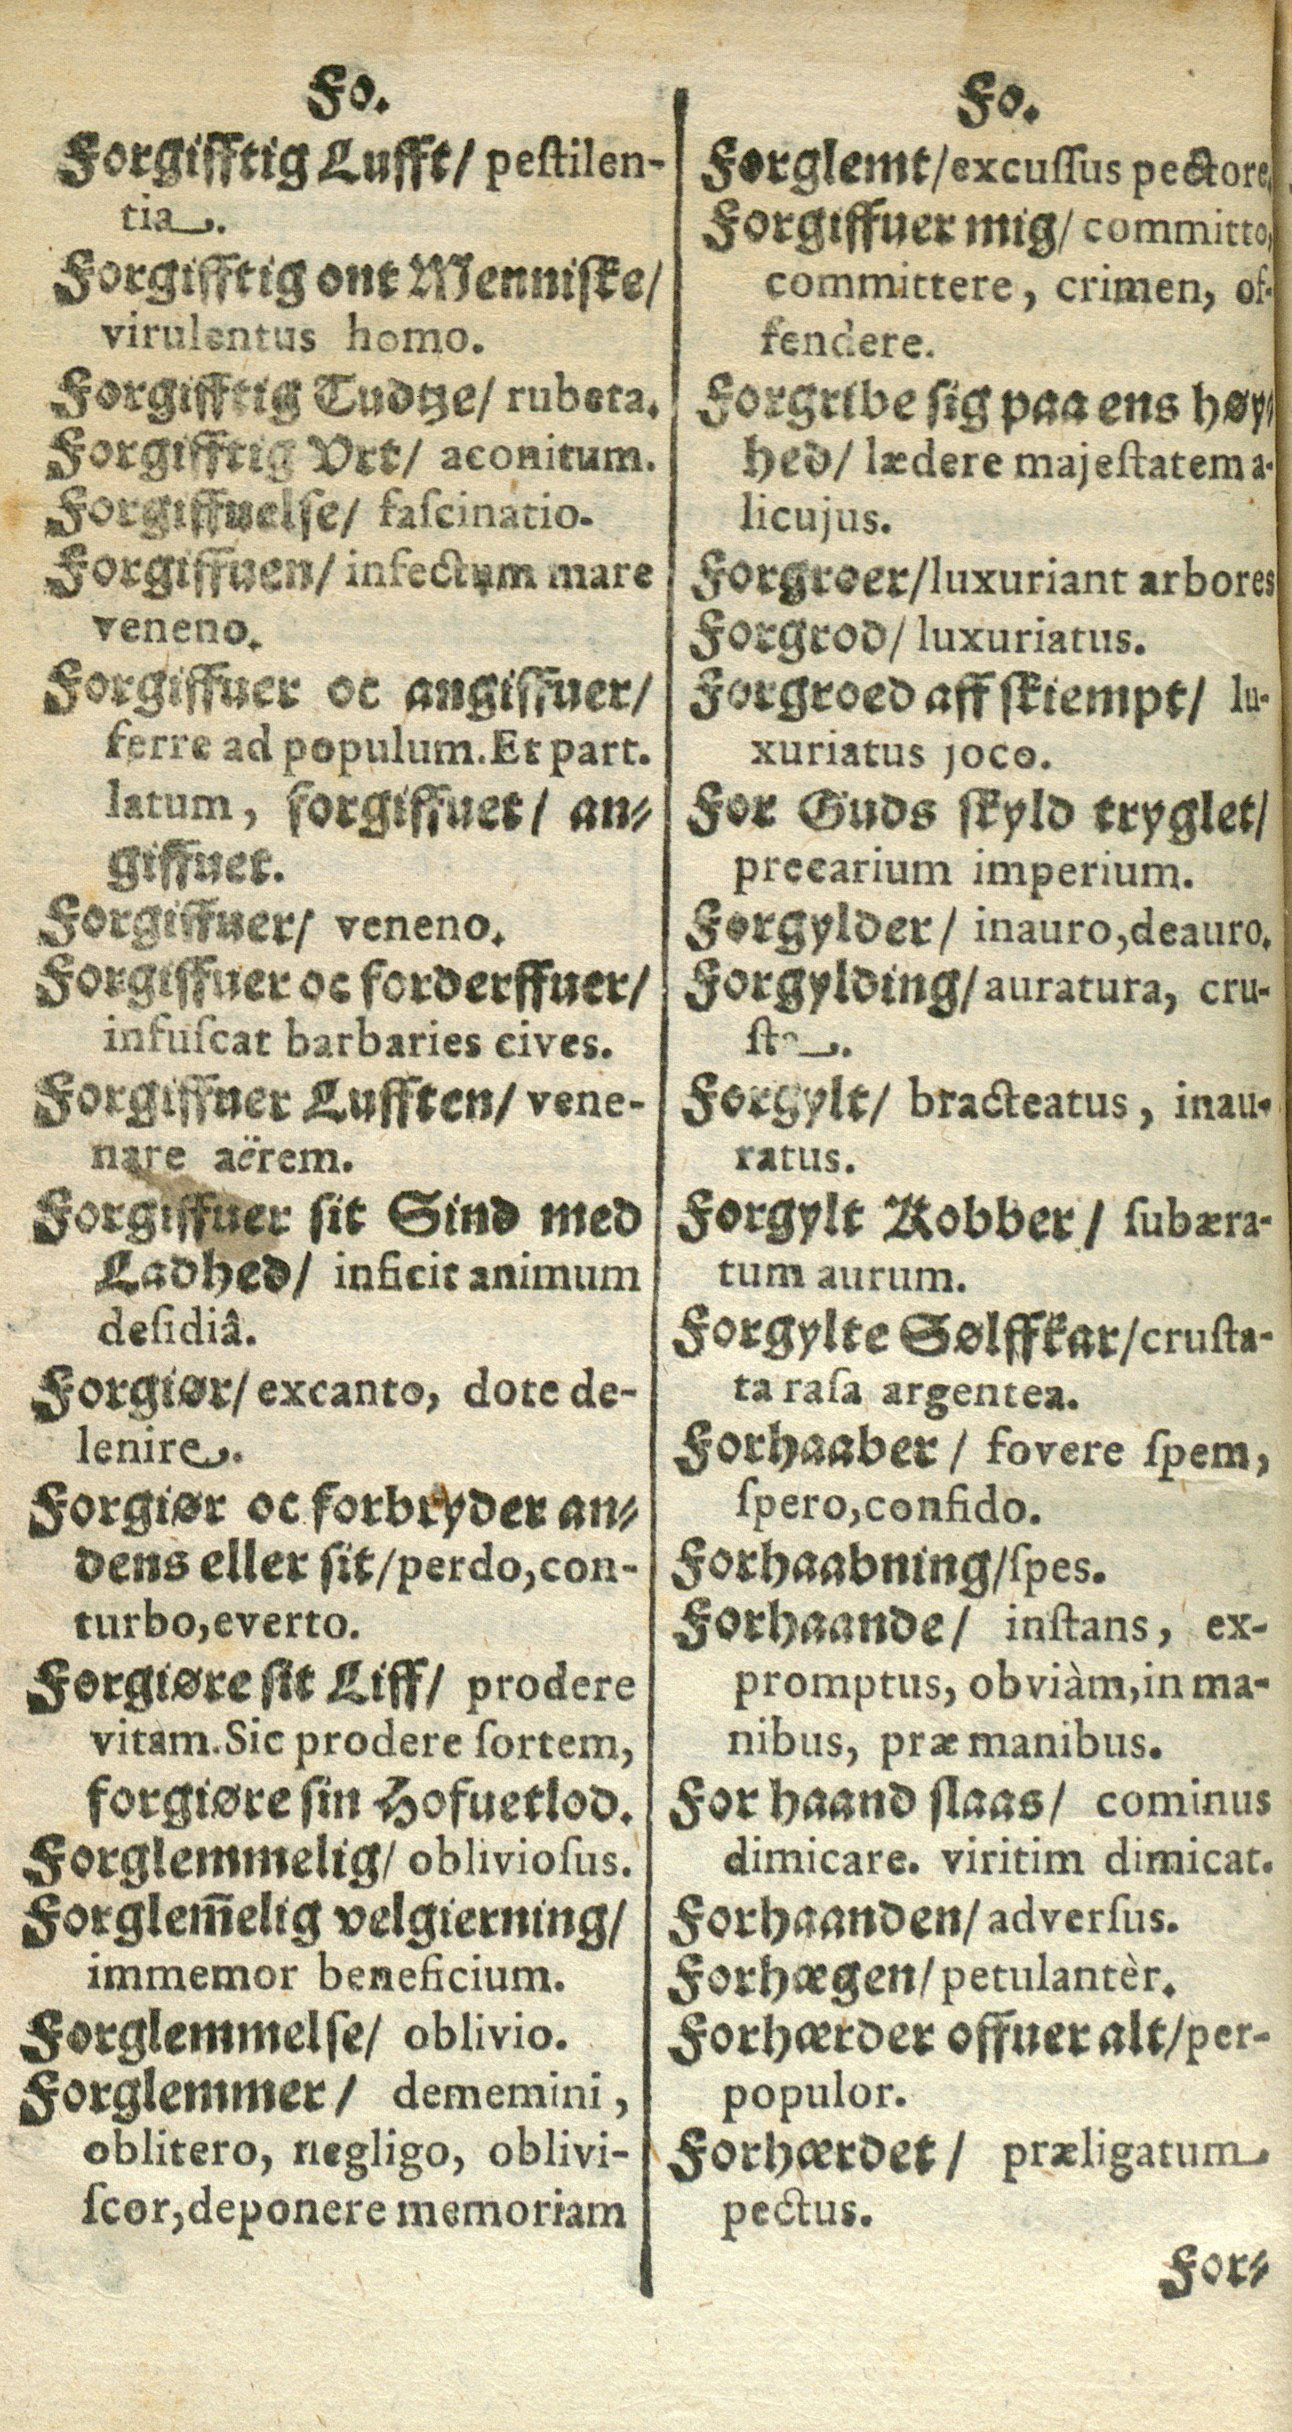 Fo.
Forgifftig Lufft/ peſtilen-
tia.
Forgifftig ont Menniſke/
virulentus homo.
Forgifftig Tudtze/ rubeta.
Forgifftig Vrt/ aconitum.
Forgiffuelſe/ faſcinatio.
Forgiffuen/ infectum mare
veneno.
Forgiffuer oc angiffuer/
ferre ad populum. Et part.
latum, forgiffuet/ an⸗
giffuet.
Forgiffuer/ veneno.
Forgiffuer oc forderffuer/
infuſcat barbaries cives.
Forgiffuer Lufften/ vene-
nare aërem.
Forgiffuer ſit Sind med
Ladhed/ inficit animum
deſidiâ.
Forgiør/ excanto, dote de-
lenire.
Forgiør oc forbryder an⸗
dens eller ſit/ perdo, con-
turbo, everto.
Forgiøre ſit Liff/ prodere
vitam. Sic prodere ſortem,
forgiøre ſin Hofuetlod.
Forglemmelig/ oblivioſus.
Forglem̄elig velgierning/
immemor beneficium.
Forglemmelſe/ oblivio.
Forglemmer/ dememini,
oblitero, negligo, oblivi-
ſcor, deponere memoriam
Fo.
Forglemt/ excuſſus pectore,
Forgiffuer mig/ committo,
committere, crimen, of-
fendere.
Forgribe ſig paa ens høy/
hed/ lædere majeſtatem a-
licujus.
Forgroer/ luxuriant arbores
Forgrod/ luxuriatus.
Forgroed aff ſkiempt/ lu-
xuriatus joco.
For Guds ſkyld tryglet/
precarium imperium.
Forgylder/ inauro, deauro.
Forgylding/ auratura, cru-
ſta.
Forgylt/ bracteatus, inau-
ratus.
Forgylt Kobber/ ſubæra-
tum aurum.
Forgylte Sølffkar/ cruſta-
ta raſa argentea.
Forhaaber/ fovere ſpem,
ſpero, confido.
Forhaabning/ ſpes.
Forhaande/ inſtans, ex-
promptus, obviàm, in ma-
nibus, præ manibus.
For haand ſlaas/ cominus
dimicare. viritim dimicat.
Forhaanden/ adverſus.
Forhægen/ petulantèr.
Forhærder offuer alt/ per-
populor.
Forhærdet/ præligatum
pectus.
For⸗